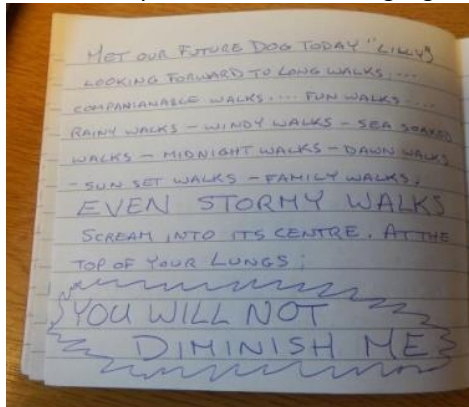 MET OUR FUTURE DOG TODAY "LILLY"
LOOKING FORWARD TO LONG WALKS....
COMPANIANABLE WALKS.... FUN WALKS....
RAINY WALKS - WINDY WALKS - SEA SOAKED
WALKS - MIDNIGHT WALKS - DAWN WALKS
- SUN SET WALKS - FAMILY WALKS,
EVEN STORMY WALKS
SCREAM INTO ITS CENTRE. AT THE
TOP OF YOUR LUNGS;
YOU WILL NOT
DIMINISH ME